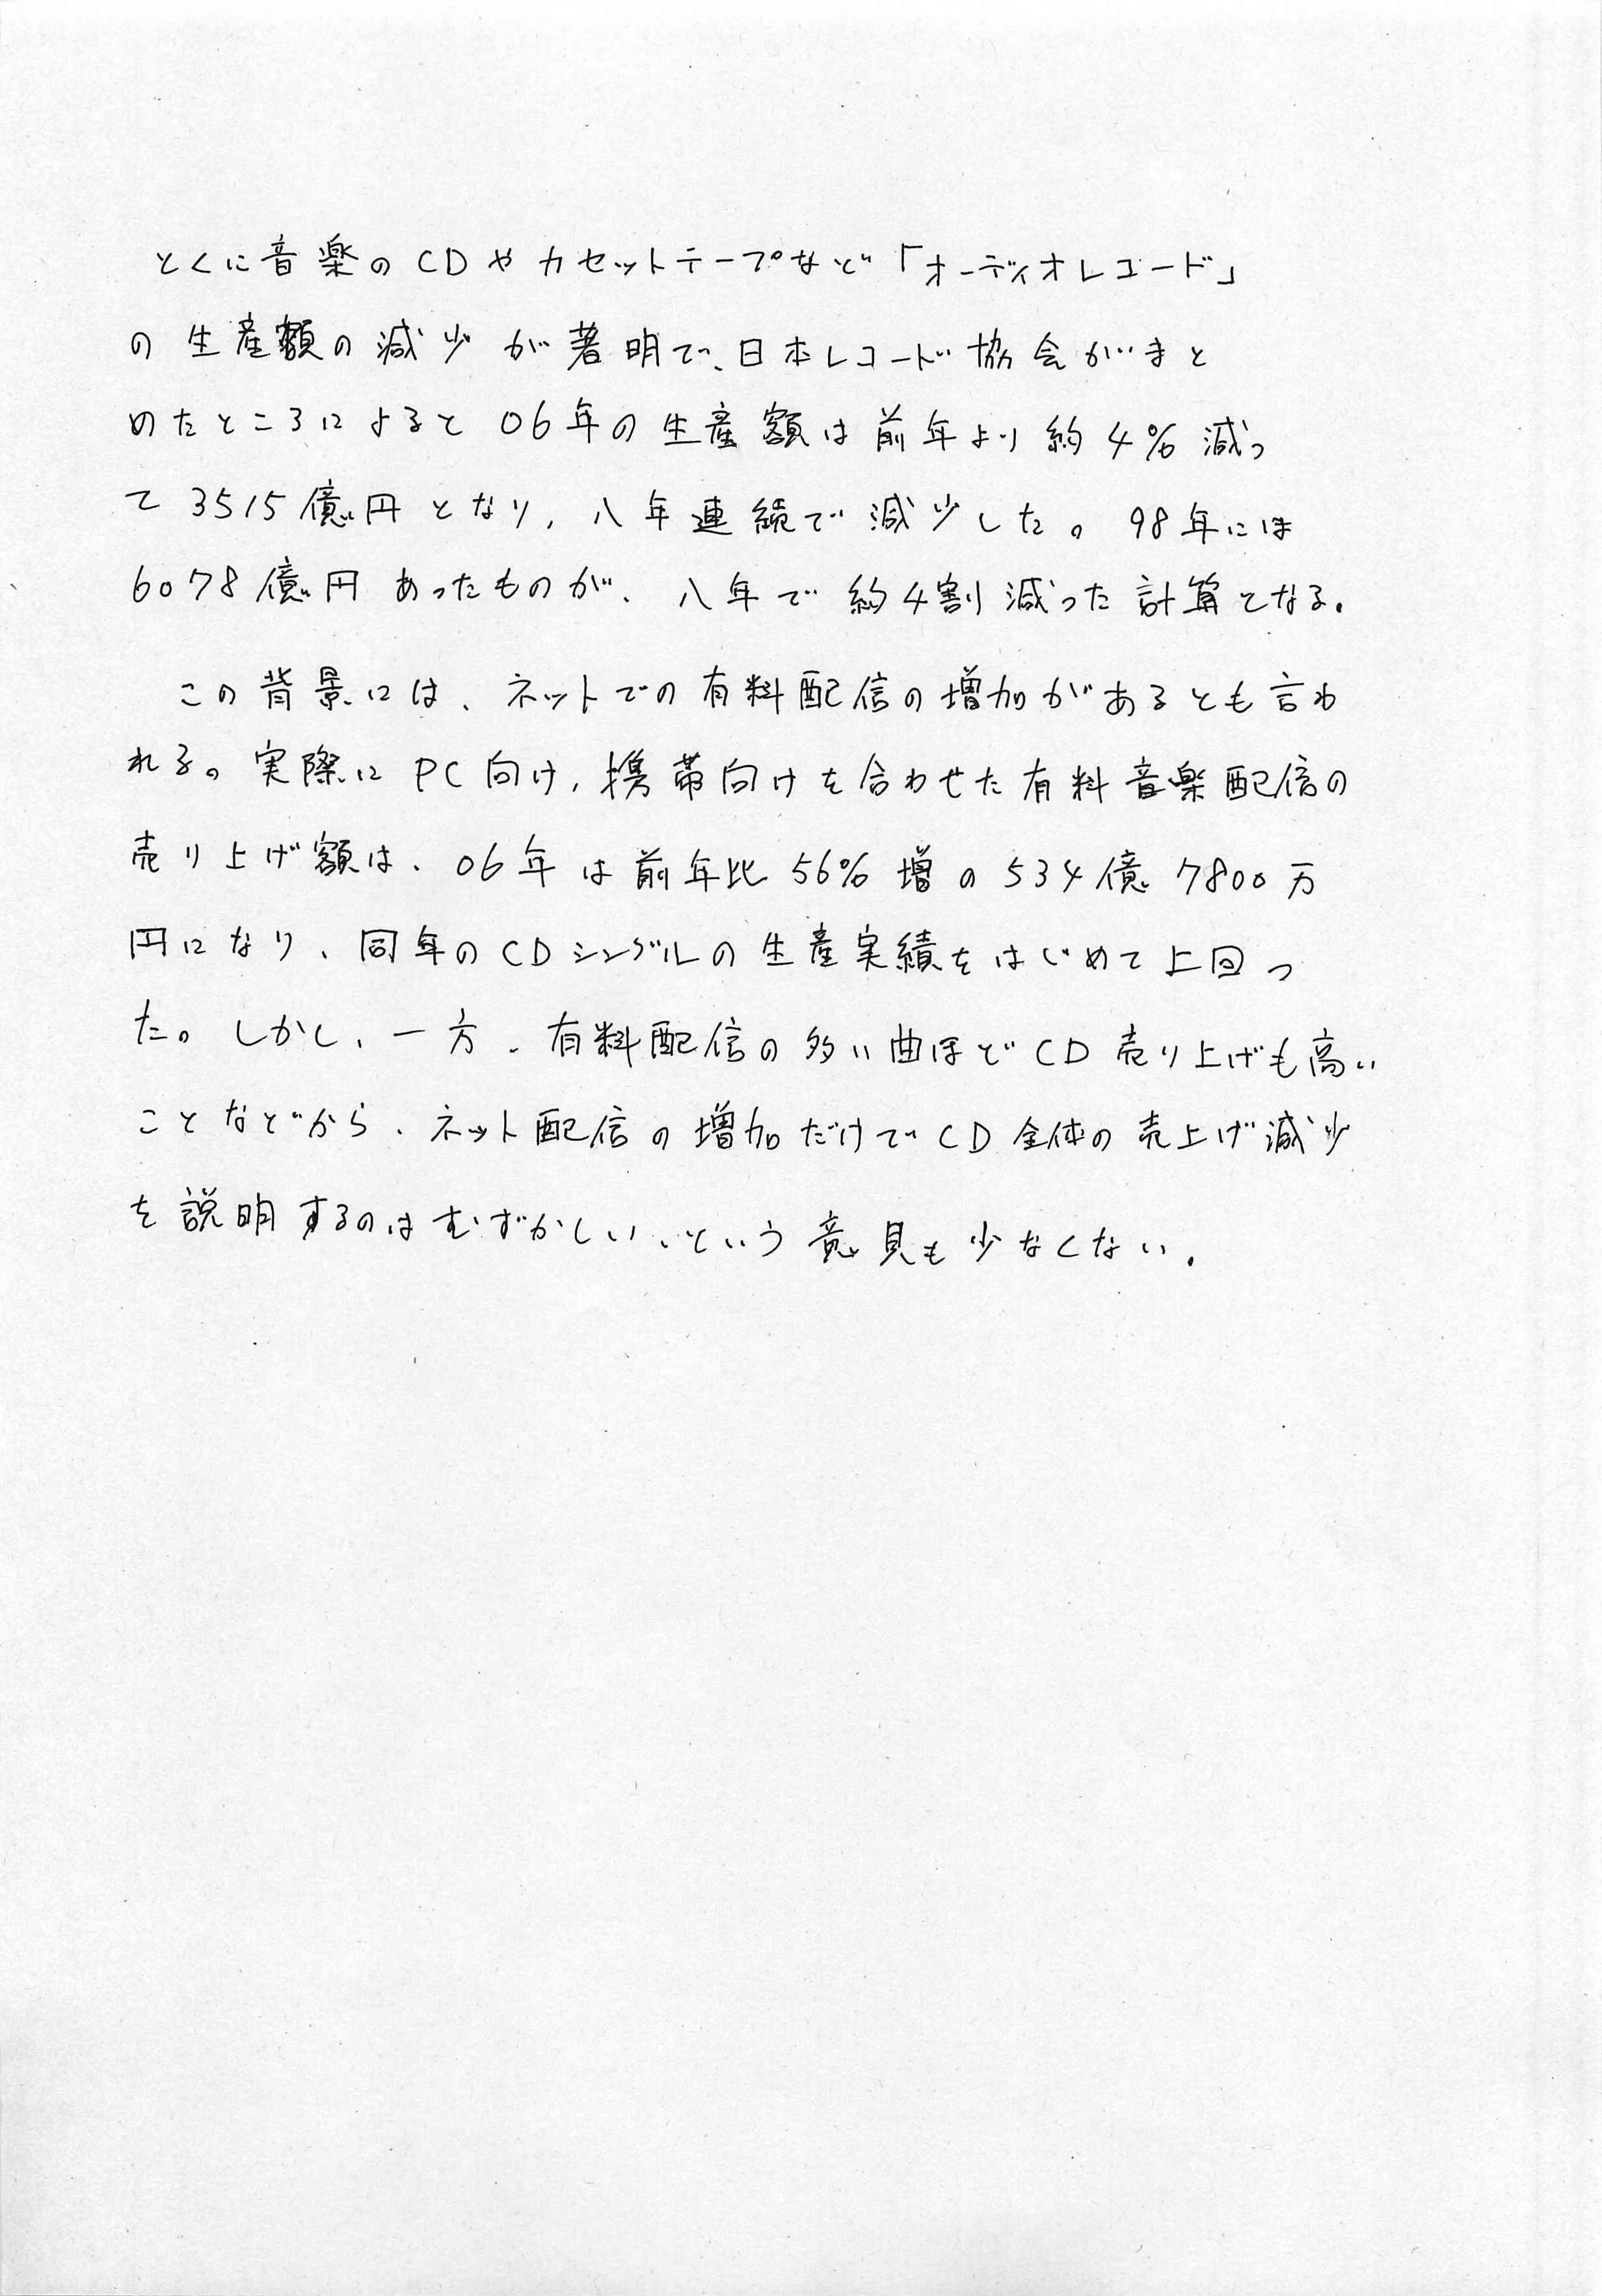 とくに音楽のCDやカセットテープなど「オーディオレコード」
の生産額の減少が著明で、日本レコード協会がまと
めたところによると06年の生産額は前年より約4%減っ
て3515億円となり、八年連続で減少した。98年には
6078億円あったものが、八年で約4割減った計算となる。
この背景には、ネットでの有料配信の増加があるとも言わ
れる。実際にPC向け、携帯向けを合わせた有料音楽配信の
売り上げ額は、06年は前年比56%増の534億7800万
円になり、同年のCDシングルの生産実績をはじめて上回っ
た。しかし、一方、有料配信の多い曲ほどCD売り上げも高い
ことなどから、ネット配信の増加だけでCD全体の売上げ減少
を説明するのはむずかしい、という意見も少なくない。